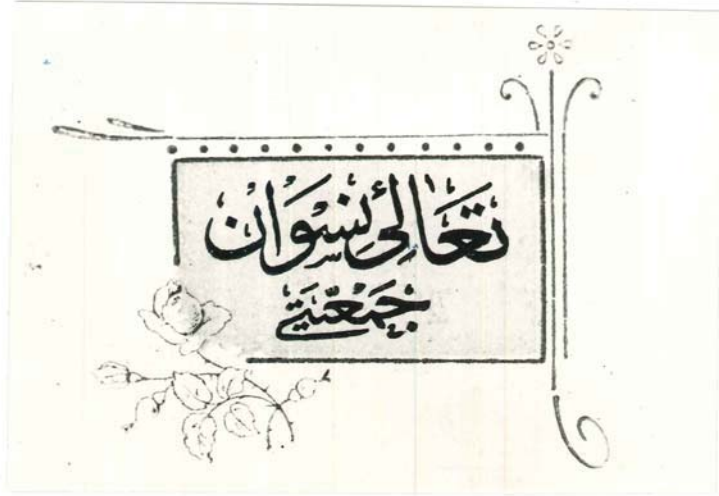 تَعَالِیٔ نِسْوَان
جَمْعِيَّتی